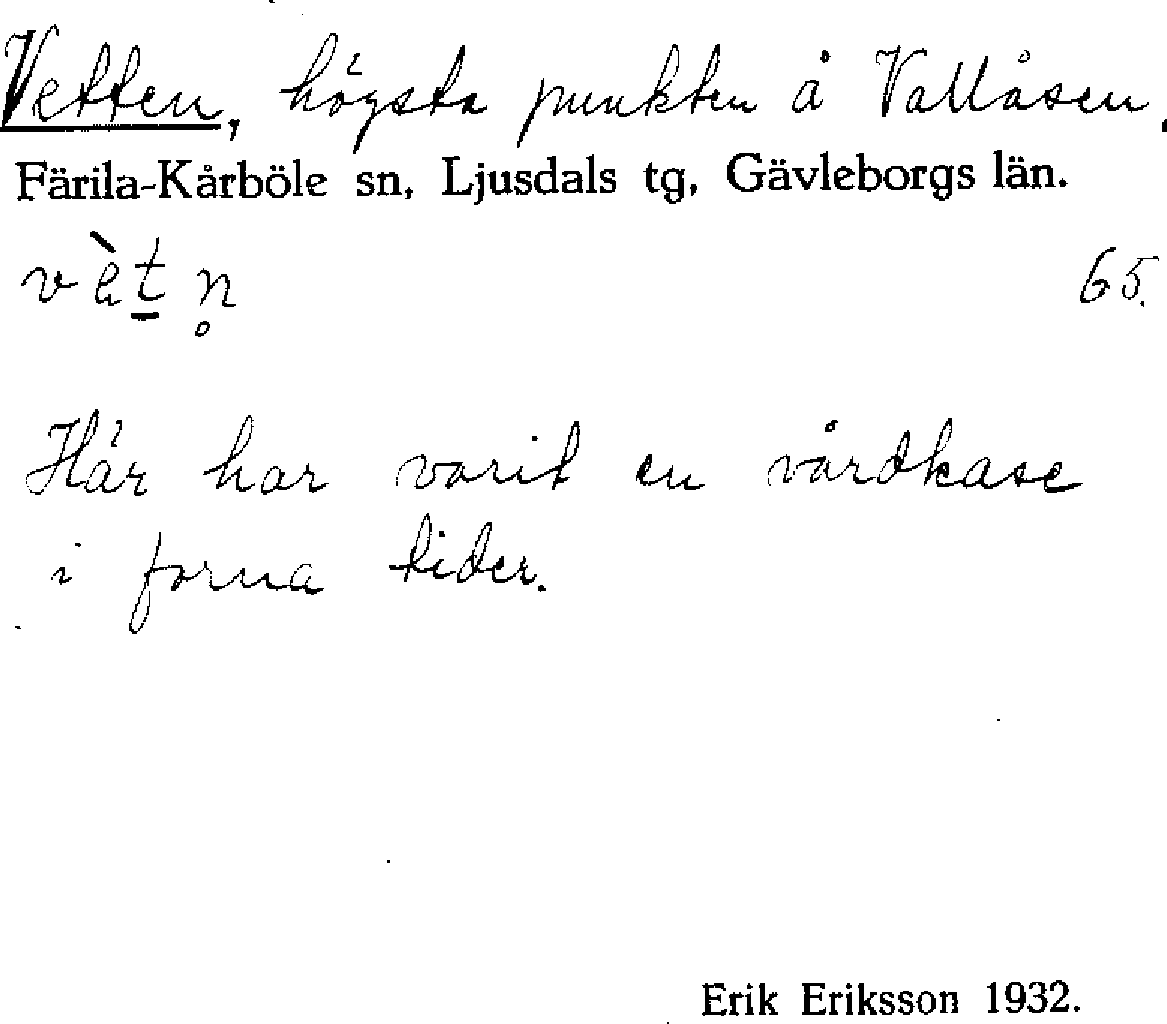 Vetten, högsta punkten å Vallåsen.
Färila-Kårböle sn, Ljusdals tg, Gävleborgs län.
vèt̲n̥ 65.
Här har varit en vårdkase
i forna tider.
Erik Eriksson 1932.